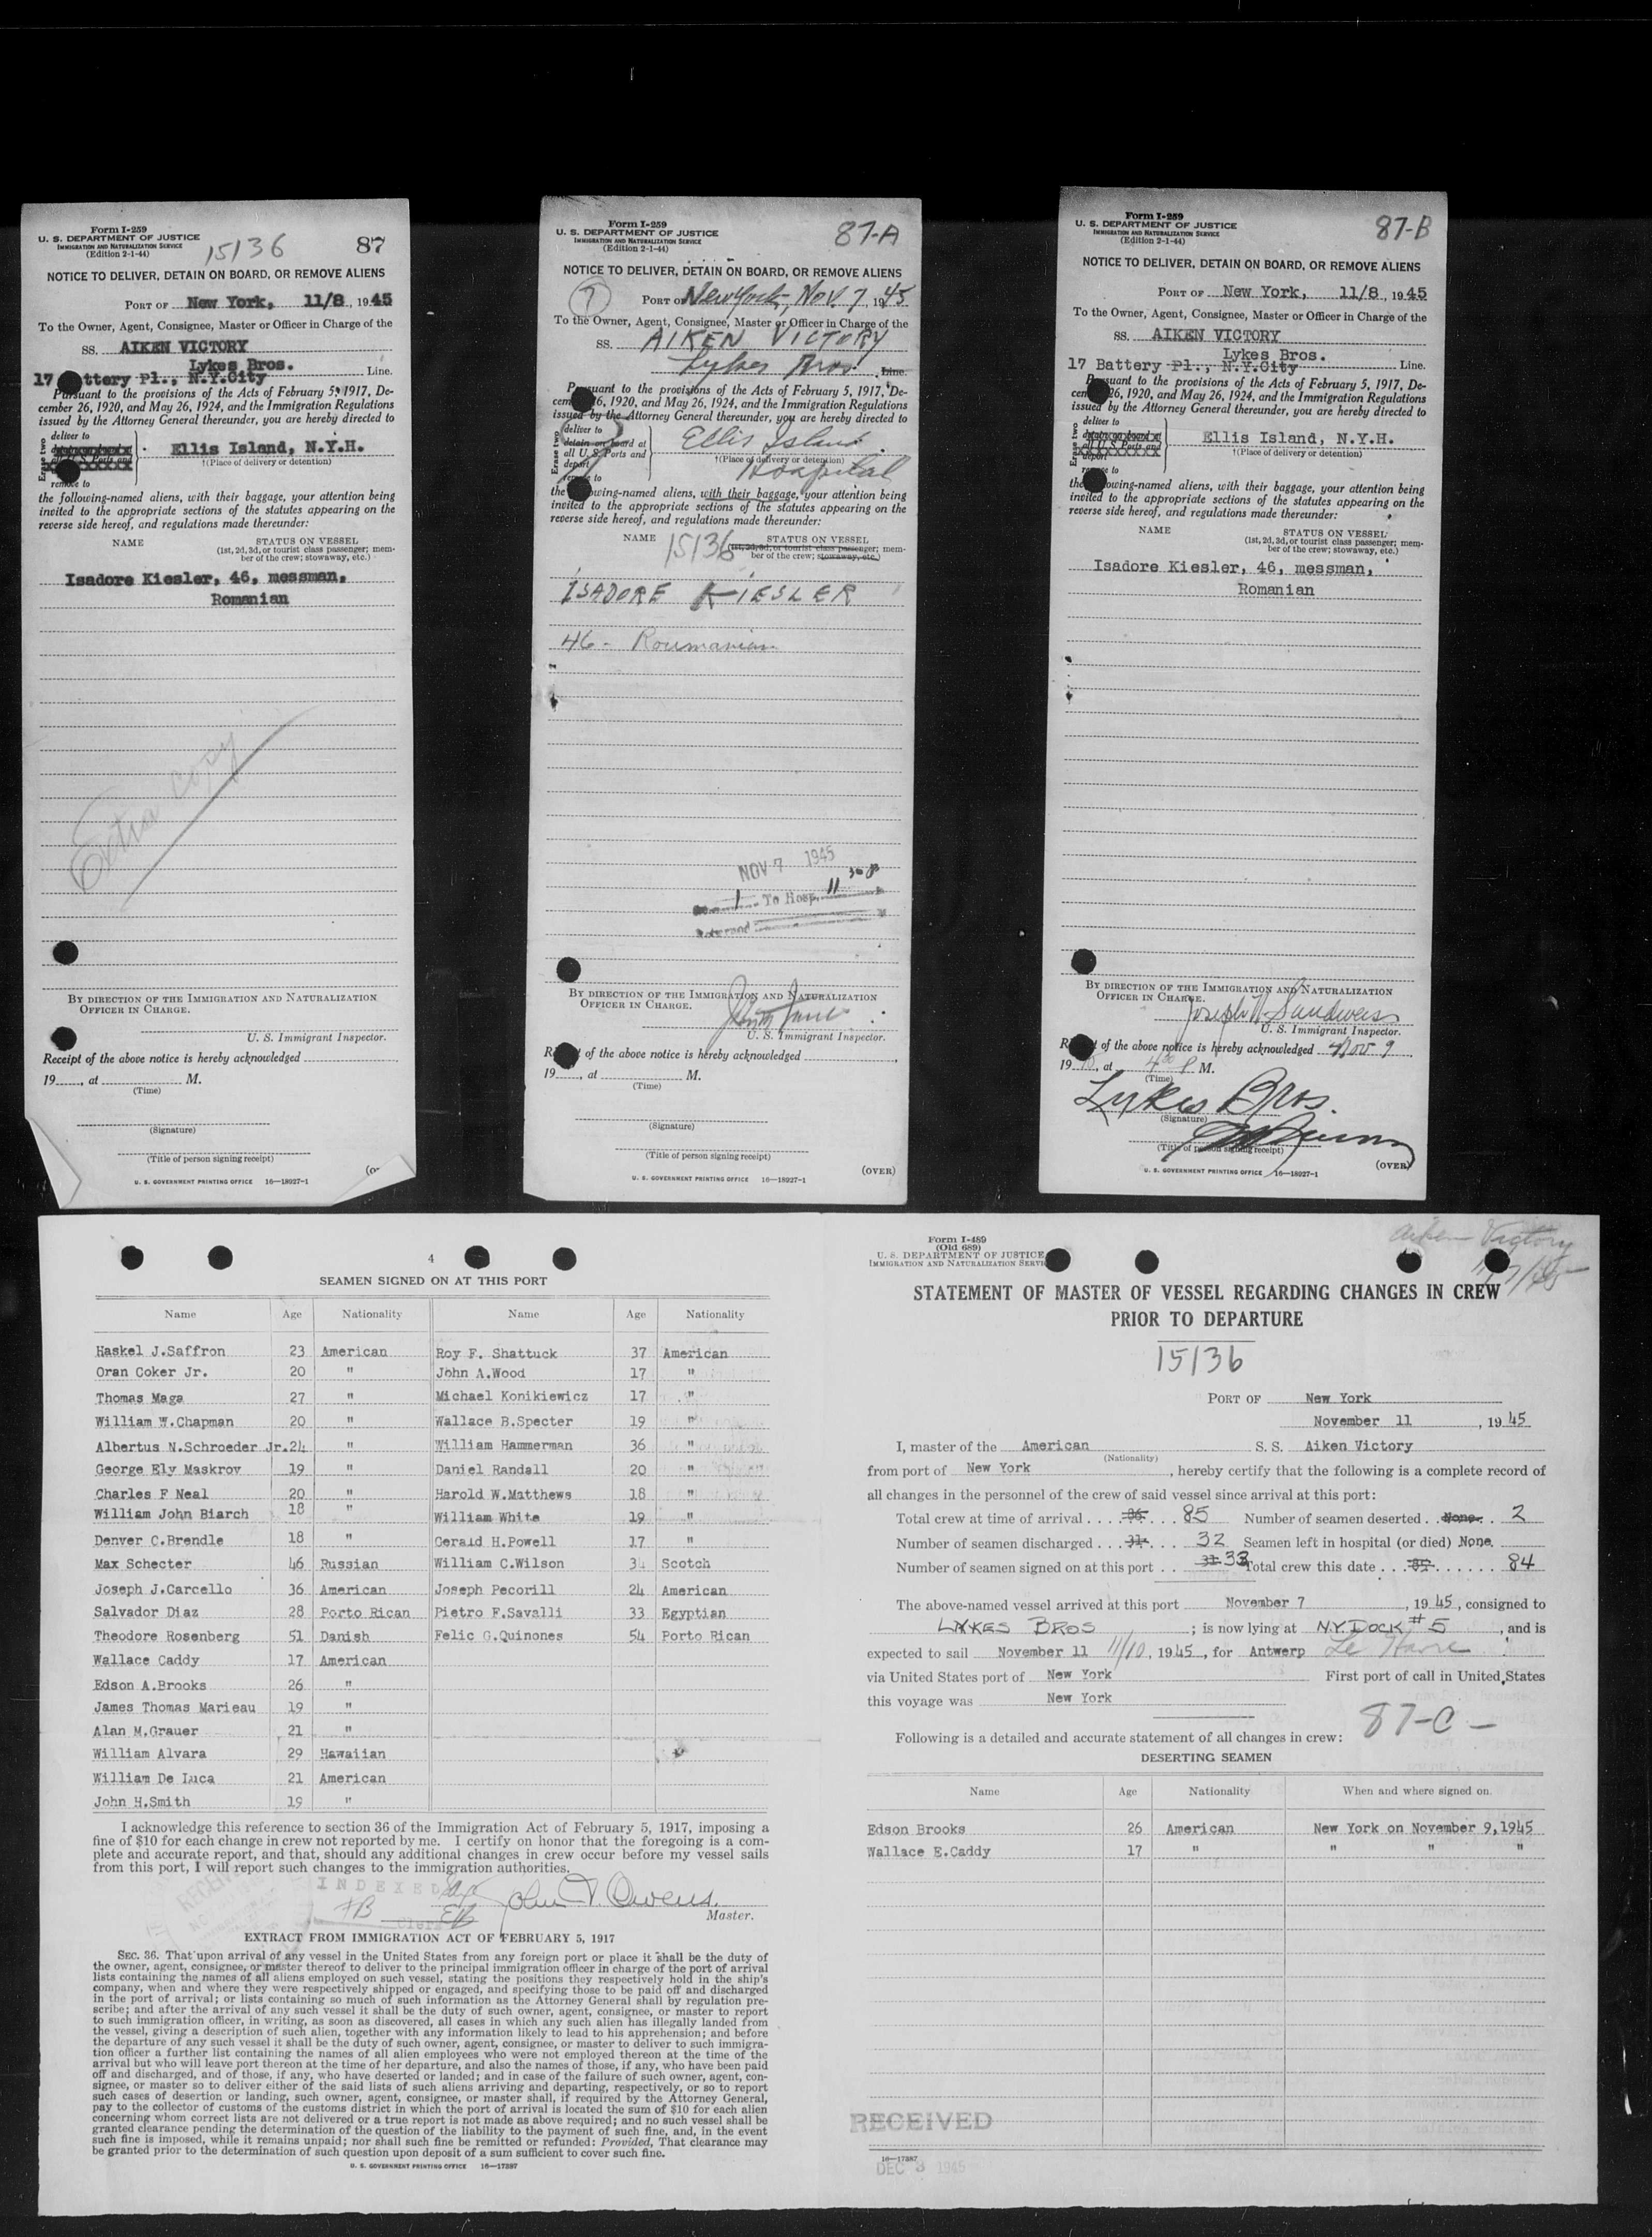 Form I-259
U. S. DEPARTMENT OF JUSTICE
IMMIGRATION AND NATURALIZATION SERVICE
(Edition 2-1-44)
15136
87
NOTICE TO DELIVER, DETAIN ON BOARD, OR REMOVE ALIENS
PORT OF New York, 11/8, 1945
To the Owner, Agent, Consignee, Master or Officer in Charge of the
SS. AIKEN VICTORY
Lykes Bros.
17 Battery Pl., N.Y.City Line.
Pursuant to the provisions of the Acts of February 5, 1917, De-
cember 26, 1920, and May 26, 1924, and the Immigration Regulations
issued by the Attorney General thereunder, you are hereby directed to
Erase two
deliver to
Ellis Island, N.Y.H.
†(Place of delivery or detention)
remove to
the following-named aliens, with their baggage, your attention being
invited to the appropriate sections of the statutes appearing on the
reverse side hereof, and regulations made thereunder:
NAME STATUS ON VESSEL
(1st, 2d, 3d, or tourist class passenger; mem-
ber of the crew; stowaway, etc.)
Isadore Kiesler, 46, messman,
Romanian
Extra copy
BY DIRECTION OF THE IMMIGRATION AND NATURALIZATION
OFFICER IN CHARGE.
U. S. Immigrant Inspector.
Receipt of the above notice is hereby acknowledged
19, at M.
(Time)
(Signature)
(Title of person signing receipt)
U. S. GOVERNMENT PRINTING OFFICE 16—18927-1
Form I-259
U. S. DEPARTMENT OF JUSTICE
IMMIGRATION AND NATURALIZATION SERVICE
(Edition 2-1-44)
87-A
NOTICE TO DELIVER, DETAIN ON BOARD, OR REMOVE ALIENS
PORT OF New York, Nov. 7, 1945
To the Owner, Agent, Consignee, Master or Officer in Charge of the
SS. AIKEN VICTORY
Lykes Bros. Line.
Pursuant to the provisions of the Acts of February 5, 1917, De-
cember 26, 1920, and May 26, 1924, and the Immigration Regulations
issued by the Attorney General thereunder, you are hereby directed to
Erase two
deliver to
detain on board at
all U. S. Ports and
deport
remove to
Ellis Island
†(Place of delivery or detention)
Hospital
the following-named aliens, with their baggage, your attention being
invited to the appropriate sections of the statutes appearing on the
reverse side hereof, and regulations made thereunder:
NAME 15136 STATUS ON VESSEL
(1st, 2d, 3d, or tourist class passenger; mem-
ber of the crew; stowaway, etc.)
ISADORE KIESLER
46 - Roumanian
NOV 7 1945
1 To Hosp. 11
Returned
BY DIRECTION OF THE IMMIGRATION AND NATURALIZATION
OFFICER IN CHARGE.
U. S. Immigrant Inspector.
Receipt of the above notice is hereby acknowledged
19, at M.
(Time)
(Signature)
(Title of person signing receipt)
(OVER)
U. S. GOVERNMENT PRINTING OFFICE 16—18927-1
Form I-259
U. S. DEPARTMENT OF JUSTICE
IMMIGRATION AND NATURALIZATION SERVICE
(Edition 2-1-44)
87-B
NOTICE TO DELIVER, DETAIN ON BOARD, OR REMOVE ALIENS
PORT OF New York, 11/8, 1945
To the Owner, Agent, Consignee, Master or Officer in Charge of the
SS. AIKEN VICTORY
Lykes Bros.
17 Battery Pl., N.Y.City Line.
Pursuant to the provisions of the Acts of February 5, 1917, De-
cember 26, 1920, and May 26, 1924, and the Immigration Regulations
issued by the Attorney General thereunder, you are hereby directed to
Erase two
deliver to
detain on board at
all U. S. Ports and
deport
remove to
Ellis Island, N.Y.H.
†(Place of delivery or detention)
the following-named aliens, with their baggage, your attention being
invited to the appropriate sections of the statutes appearing on the
reverse side hereof, and regulations made thereunder:
NAME STATUS ON VESSEL
(1st, 2d, 3d, or tourist class passenger; mem-
ber of the crew; stowaway, etc.)
Isadore Kiesler, 46, messman,
Romanian
BY DIRECTION OF THE IMMIGRATION AND NATURALIZATION
OFFICER IN CHARGE.
Joseph W. Sandweiss
U. S. Immigrant Inspector.
Receipt of the above notice is hereby acknowledged Nov 9
19 45, at 4 00 P M.
(Time)
Lykes Bros.
(Signature)
(Title of person signing receipt)
(OVER)
U. S. GOVERNMENT PRINTING OFFICE 16—18927-1
4
SEAMEN SIGNED ON AT THIS PORT
Name Age Nationality Name Age Nationality
Haskel J.Saffron 23 American Roy F. Shattuck 37 American
Oran Coker Jr. 20 " John A.Wood 17 "
Thomas Maga 27 " Michael Konikiewicz 17 "
William W.Chapman 20 " Wallace B.Specter 19 "
Albertus N.Schroeder Jr.24 " William Hammerman 36 "
George Ely Maskrov 19 " Daniel Randall 20 "
Charles F Neal 20 " Harold W.Matthews 18 "
William John Biarch 18 " William White 19 "
Denver C.Brendle 18 " Gerald H.Powell 17 "
Max Schecter 46 Russian William C.Wilson 34 Scotch
Joseph J.Carcello 36 American Joseph Pecorill 24 American
Salvador Diaz 28 Porto Rican Pietro F.Savalli 33 Egyptian
Theodore Rosenberg 51 Danish Felic G.Quinones 54 Porto Rican
Wallace Caddy 17 American
Edson A.Brooks 26 "
James Thomas Marieau 19 "
Alan M.Grauer 21 "
William Alvara 29 Hawaiian
William De Luca 21 American
John H.Smith 19 "
I acknowledge this reference to section 36 of the Immigration Act of February 5, 1917, imposing a
fine of $10 for each change in crew not reported by me. I certify on honor that the foregoing is a com-
plete and accurate report, and that, should any additional changes in crew occur before my vessel sails
from this port, I will report such changes to the immigration authorities.
INDEXED
John T. Owens.
Clerk
Master.
EXTRACT FROM IMMIGRATION ACT OF FEBRUARY 5, 1917
SEC. 36. That upon arrival of any vessel in the United States from any foreign port or place it shall be the duty of
the owner, agent, consignee, or master thereof to deliver to the principal immigration officer in charge of the port of arrival
lists containing the names of all aliens employed on such vessel, stating the positions they respectively hold in the ship's
company, when and where they were respectively shipped or engaged, and specifying those to be paid off and discharged
in the port of arrival; or lists containing so much of such information as the Attorney General shall by regulation pre-
scribe; and after the arrival of any such vessel it shall be the duty of such owner, agent, consignee, or master to report
to such immigration officer, in writing, as soon as discovered, all cases in which any such alien has illegally landed from
the vessel, giving a description of such alien, together with any information likely to lead to his apprehension; and before
the departure of any such vessel it shall be the duty of such owner, agent, consignee, or master to deliver to such immigra-
tion officer a further list containing the names of all alien employees who were not employed thereon at the time of the
arrival but who will leave port thereon at the time of her departure, and also the names of those, if any, who have been paid
off and discharged, and of those, if any, who have deserted or landed; and in case of the failure of such owner, agent, con-
signee, or master so to deliver either of the said lists of such aliens arriving and departing, respectively, or so to report
such cases of desertion or landing, such owner, agent, consignee, or master shall, if required by the Attorney General,
pay to the collector of customs of the customs district in which the port of arrival is located the sum of $10 for each alien
concerning whom correct lists are not delivered or a true report is not made as above required; and no such vessel shall be
granted clearance pending the determination of the question of the liability to the payment of such fine, and, in the event
such fine is imposed, while it remains unpaid; nor shall such fine be remitted or refunded: Provided, That clearance may
be granted prior to the determination of such question upon deposit of a sum sufficient to cover such fine.
U. S. GOVERNMENT PRINTING OFFICE 16—17387
Form I-489
(Old 689)
U. S. DEPARTMENT OF JUSTICE
IMMIGRATION AND NATURALIZATION SERVICE
Aiken Victory
11/7/45
STATEMENT OF MASTER OF VESSEL REGARDING CHANGES IN CREW
PRIOR TO DEPARTURE
15136
PORT OF New York
November 11, 1945
I, master of the American S. S. Aiken Victory
(Nationality)
from port of New York, hereby certify that the following is a complete record of
all changes in the personnel of the crew of said vessel since arrival at this port:
Total crew at time of arrival 86 85 Number of seamen deserted None. 2
Number of seamen discharged 31 32 Seamen left in hospital (or died) None
Number of seamen signed on at this port 31 33 Total crew this date 84
The above-named vessel arrived at this port November 7, 1945, consigned to
LYKES BROS; is now lying at N.Y. DOCK # 5, and is
expected to sail November 11 11/10, 1945, for Antwerp Le Havre
via United States port of New York First port of call in United States
this voyage was New York
87-C-
Following is a detailed and accurate statement of all changes in crew:
DESERTING SEAMEN
Name Age Nationality When and where signed on
Edson Brooks 26 American New York on November 9,1945
Wallace E.Caddy 17 " " " "
RECEIVED
16—17387
DEC 3 1945